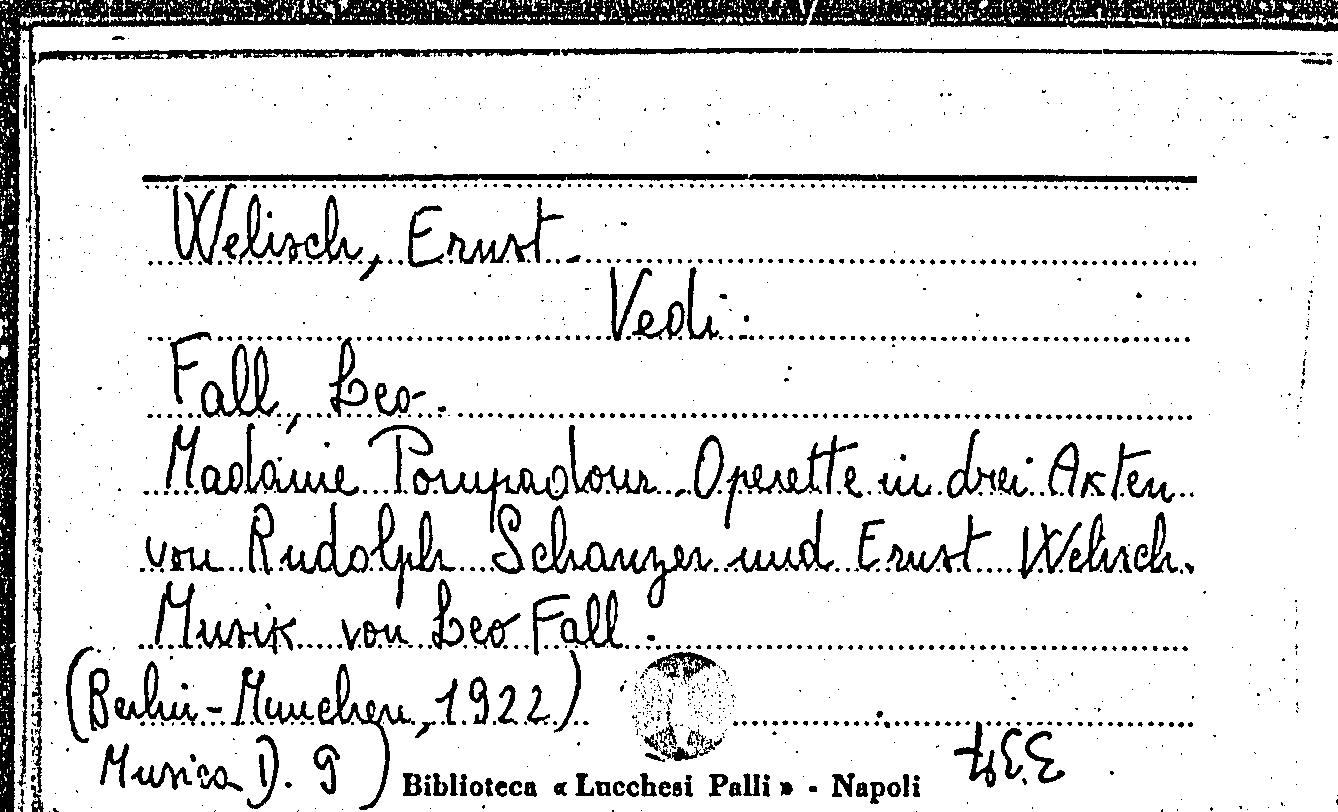 Welisch, Ernst.
Vedi:
Fall, Leo.
Madame Pompadour. Operette in drei Akten
von Rudolph Schanzer und Ernst Welisch.
Musik von Leo Fall.
(Berlin - Munchen, 1922)
Musica D. 9)
Biblioteca « Lucchesi Palli » - Napoli